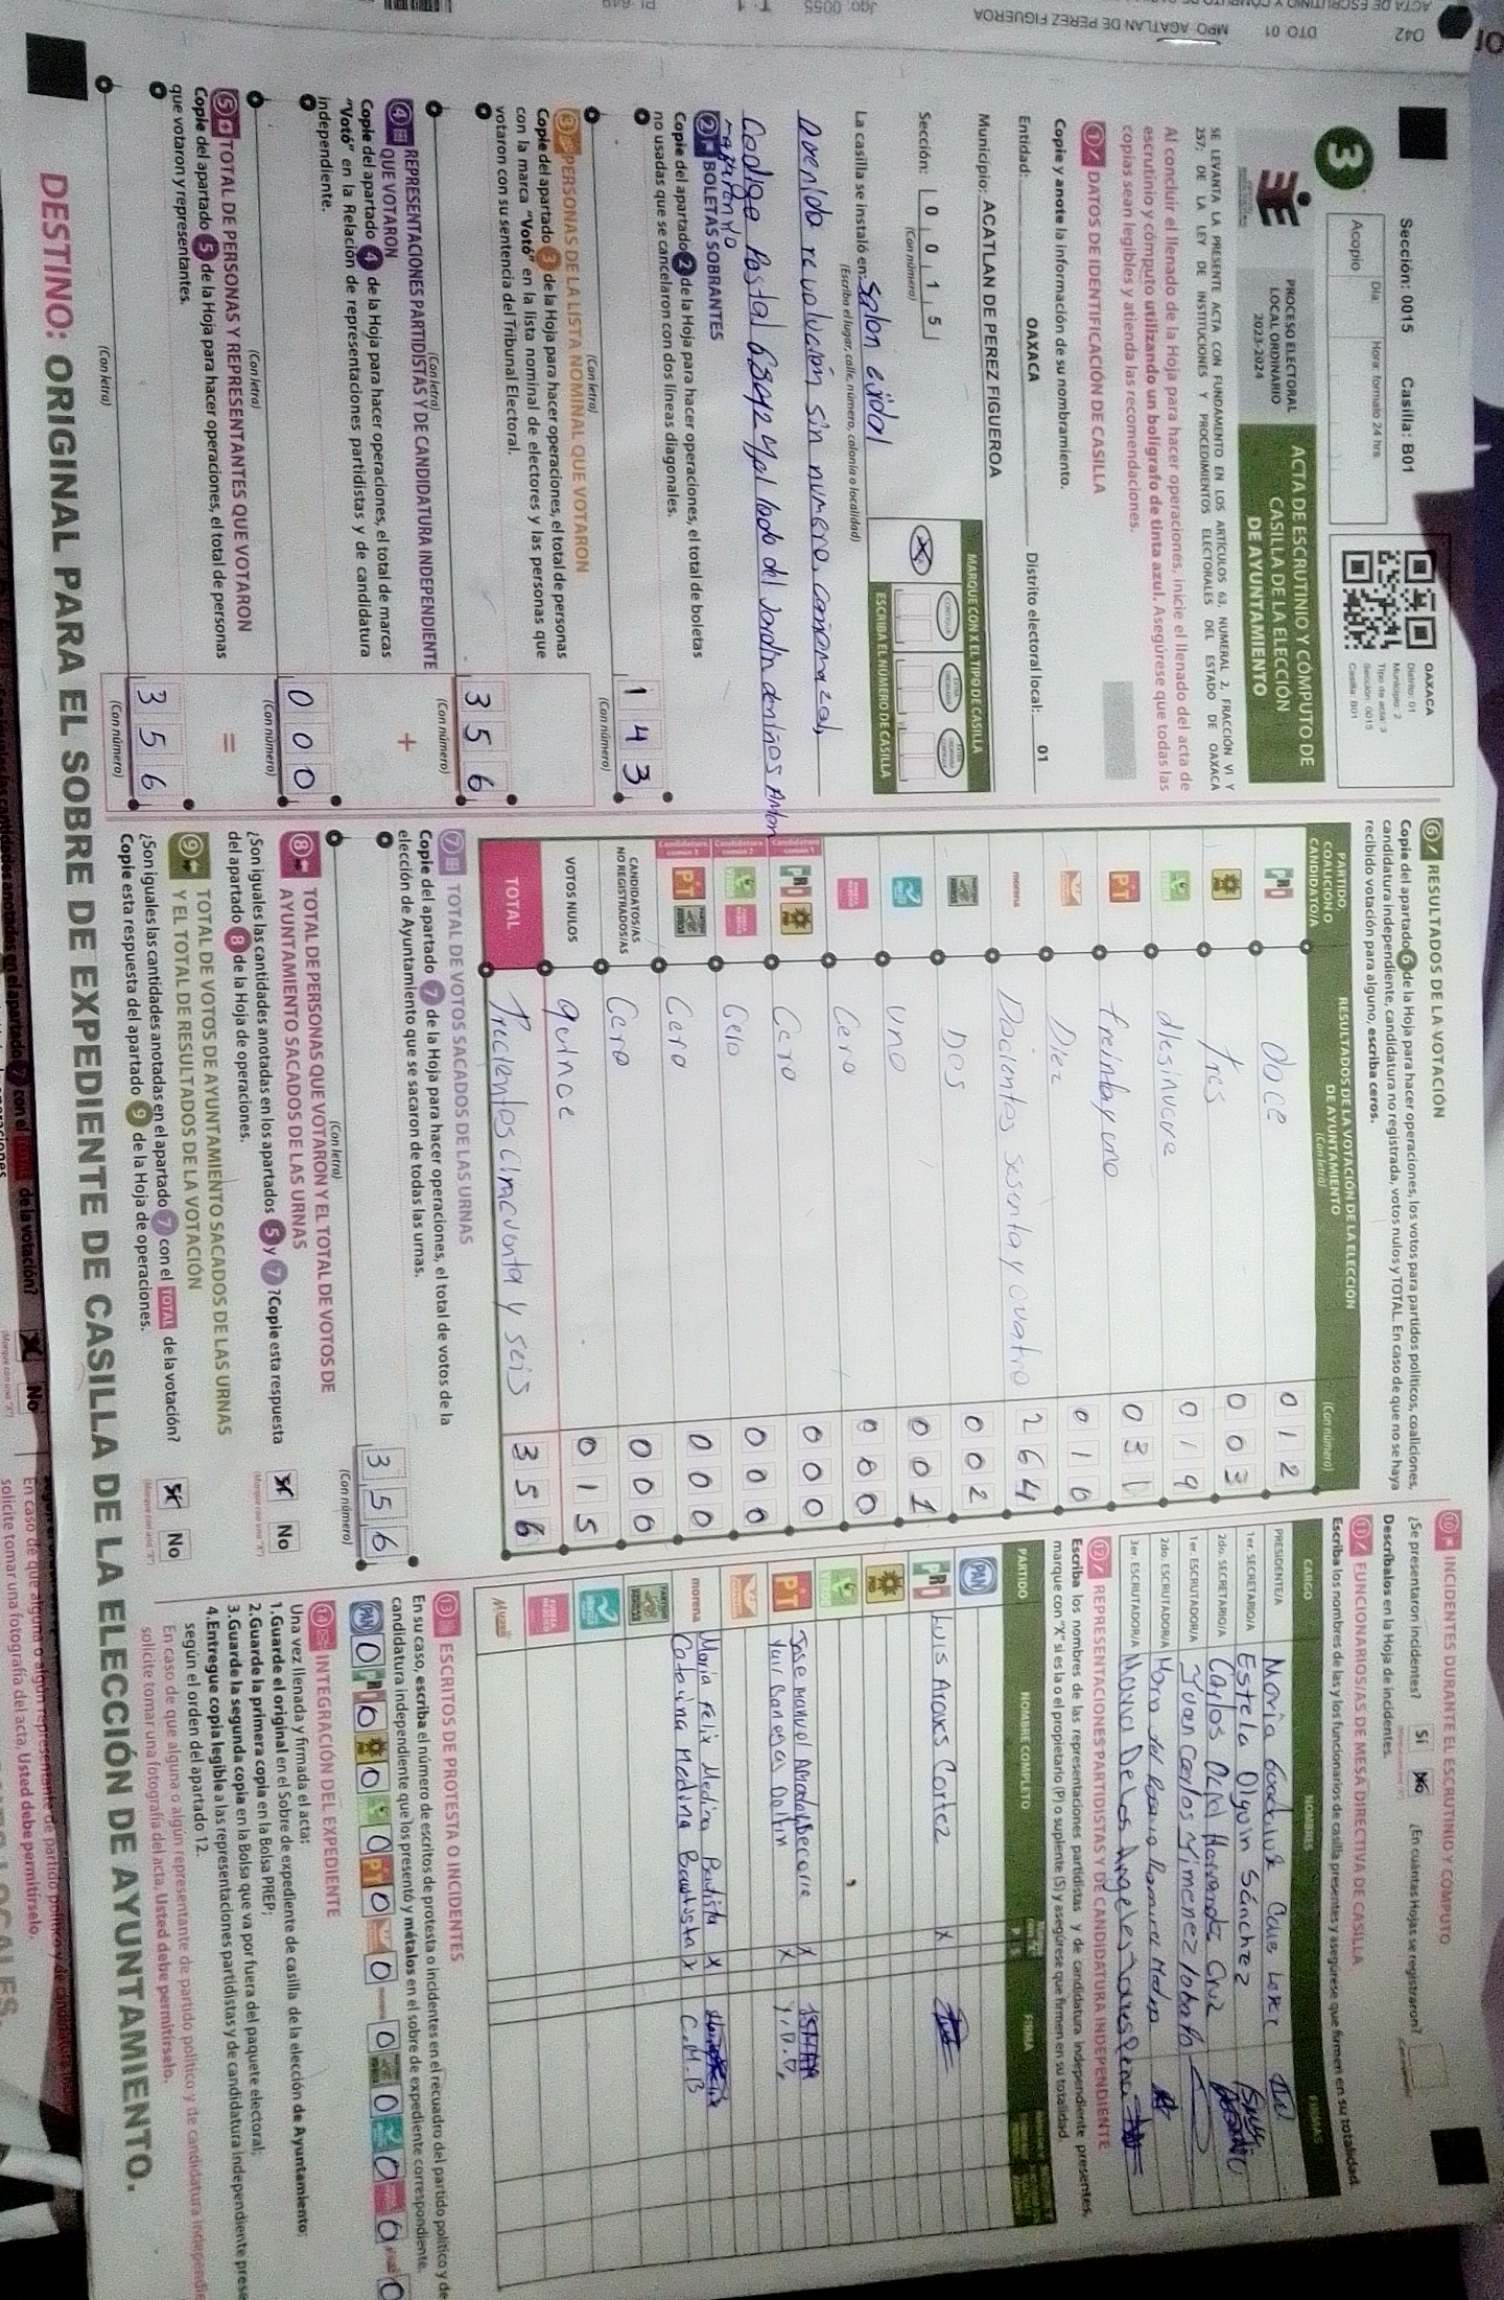 Sección: 0015 Casilla: B01
3
Acopio
Día:
Hora: formato 24 hrs.
OAXACA
Distrito: 01
Municipio: 2
Tipo de acta: 3
Sección: 0015
Casilla: B01
PROCESO ELECTORAL
LOCAL ORDINARIO
2023-2024
ACTA DE ESCRUTINIO Y CÓMPUTO DE
CASILLA DE LA ELECCIÓN
DE AYUNTAMIENTO
SE LEVANTA LA PRESENTE ACTA CON FUNDAMENTO EN LOS ARTÍCULOS 63, NUMERAL 2, FRACCIÓN VI Y
257; DE LA LEY DE INSTITUCIONES Y PROCEDIMIENTOS ELECTORALES DEL ESTADO DE OAXACA
Al concluir el llenado de la Hoja para hacer operaciones, inicie el llenado del acta de
escrutinio y cómputo utilizando un bolígrafo de tinta azul. Asegúrese que todas las
copias sean legibles y atienda las recomendaciones.
1 DATOS DE IDENTIFICACIÓN DE CASILLA
Copie y anote la información de su nombramiento.
Entidad: OAXACA Distrito electoral local: 01
Municipio: ACATLAN DE PEREZ FIGUEROA
Sección: 0 0 1 5
(Con número)
MARQUE CON X EL TIPO DE CASILLA
X
ESCRIBA EL NÚMERO DE CASILLA
La casilla se instaló en: Salon ejidal
(Escriba el lugar, calle, número, colonia o localidad)
Avenida revolución sin numero, comoma zal,
Codigo Postal 68942 y al lado del Jardin de niños Amon
2 BOLETAS SOBRANTES
Copie del apartado 2 de la Hoja para hacer operaciones, el total de boletas
no usadas que se cancelaron con dos líneas diagonales.
1 4 3
(Con letra) (Con número)
3 PERSONAS DE LA LISTA NOMINAL QUE VOTARON
Copie del apartado 3 de la Hoja para hacer operaciones, el total de personas
con la marca "Votó" en la lista nominal de electores y las personas que
votaron con su sentencia del Tribunal Electoral.
3 5 6
(Con letra) (Con número)
4 REPRESENTACIONES PARTIDISTAS Y DE CANDIDATURA INDEPENDIENTE
QUE VOTARON
+
Copie del apartado 4 de la Hoja para hacer operaciones, el total de marcas
"Votó" en la Relación de representaciones partidistas y de candidatura
independiente.
0 0 0
(Con letra) (Con número)
5 TOTAL DE PERSONAS Y REPRESENTANTES QUE VOTARON
=
Copie del apartado 5 de la Hoja para hacer operaciones, el total de personas
que votaron y representantes.
3 5 6
(Con letra) (Con número)
6 RESULTADOS DE LA VOTACIÓN
Copie del apartado 6 de la Hoja para hacer operaciones, los votos para partidos políticos, coaliciones,
candidatura independiente, candidatura no registrada, votos nulos y TOTAL. En caso de que no se haya
recibido votación para alguno, escriba ceros.
PARTIDO, COALICIÓN O CANDIDATO/A
RESULTADOS DE LA VOTACIÓN DE LA ELECCIÓN DE AYUNTAMIENTO
(Con letra) (Con número)
PRI doce 0 1 2
PRD tres 0 0 3
VERDE desinueve 0 1 9
PT treinta y uno 0 3 1
Diez 0 1 0
morena Docientos sesenta y cuatro 2 6 4
Dos 0 0 2
uno 0 0 1
Cero 0 0 0
PRI PRD Cero 0 0 0
Cero 0 0 0
PT Cero 0 0 0
CANDIDATOS/AS NO REGISTRADOS/AS Cero 0 0 0
VOTOS NULOS quince 0 1 5
TOTAL Trecientos cincuenta y seis 3 5 6
7 TOTAL DE VOTOS SACADOS DE LAS URNAS
Copie del apartado 7 de la Hoja para hacer operaciones, el total de votos de la
elección de Ayuntamiento que se sacaron de todas las urnas.
3 5 6
(Con letra) (Con número)
8 TOTAL DE PERSONAS QUE VOTARON Y EL TOTAL DE VOTOS DE
AYUNTAMIENTO SACADOS DE LAS URNAS
¿Son iguales las cantidades anotadas en los apartados 5 y 7? Copie esta respuesta
del apartado 8 de la Hoja de operaciones.
No
9 TOTAL DE VOTOS DE AYUNTAMIENTO SACADOS DE LAS URNAS
Y EL TOTAL DE RESULTADOS DE LA VOTACIÓN
¿Son iguales las cantidades anotadas en el apartado 7 con el TOTAL de la votación?
Copie esta respuesta del apartado 9 de la Hoja de operaciones.
No
10 INCIDENTES DURANTE EL ESCRUTINIO Y CÓMPUTO
¿Se presentaron incidentes? Sí No ¿En cuántas Hojas se registraron?
Descríbalos en la Hoja de incidentes.
11 FUNCIONARIOS/AS DE MESA DIRECTIVA DE CASILLA
Escriba los nombres de las y los funcionarios de casilla presentes y asegúrese que firmen en su totalidad.
CARGO NOMBRES FIRMAS
PRESIDENTE/A
1er. SECRETARIO/A Estela Olguin Sánchez
2do. SECRETARIO/A
1er. ESCRUTADOR/A Juan Carlos Jimenez lobato
2do. ESCRUTADOR/A
3er. ESCRUTADOR/A
12 REPRESENTACIONES PARTIDISTAS Y DE CANDIDATURA INDEPENDIENTE
Escriba los nombres de las representaciones partidistas y de candidatura independiente presentes,
marque con "X" si es la o el propietario (P) o suplente (S) y asegúrese que firmen en su totalidad.
PARTIDO NOMBRE COMPLETO P S FIRMA
PAN
PRI Luis Aroves Cortez X
PRD
VERDE
PT X
X Y.B.D.
morena Maria Felix Medina Bautista X
Catarina Medina Bautista X C.M.B
MUJER
13 ESCRITOS DE PROTESTA O INCIDENTES
En su caso, escriba el número de escritos de protesta o incidentes en el recuadro del partido político y de
candidatura independiente que los presentó y métalos en el sobre de expediente correspondiente.
PAN 0 PRI 0 PRD 0 0 PT 0 0 0 0 0 0 0
14 INTEGRACIÓN DEL EXPEDIENTE
Una vez llenada y firmada el acta:
1. Guarde el original en el Sobre de expediente de casilla de la elección de Ayuntamiento;
2. Guarde la primera copia en la Bolsa PREP;
3. Guarde la segunda copia en la Bolsa que va por fuera del paquete electoral;
4. Entregue copia legible a las representaciones partidistas y de candidatura independiente
según el orden del apartado 12.
En caso de que alguna o algún representante de partido político y de candidatura
solicite tomar una fotografía del acta, Usted debe permitírselo.
DESTINO: ORIGINAL PARA EL SOBRE DE EXPEDIENTE DE CASILLA DE LA ELECCIÓN DE AYUNTAMIENTO.
042 DTO 01 MPO-AGATLAN DE PEREZ FIGUEROA
de la votación? No
solicite tomar una fotografía del acta, Usted debe permitírselo.